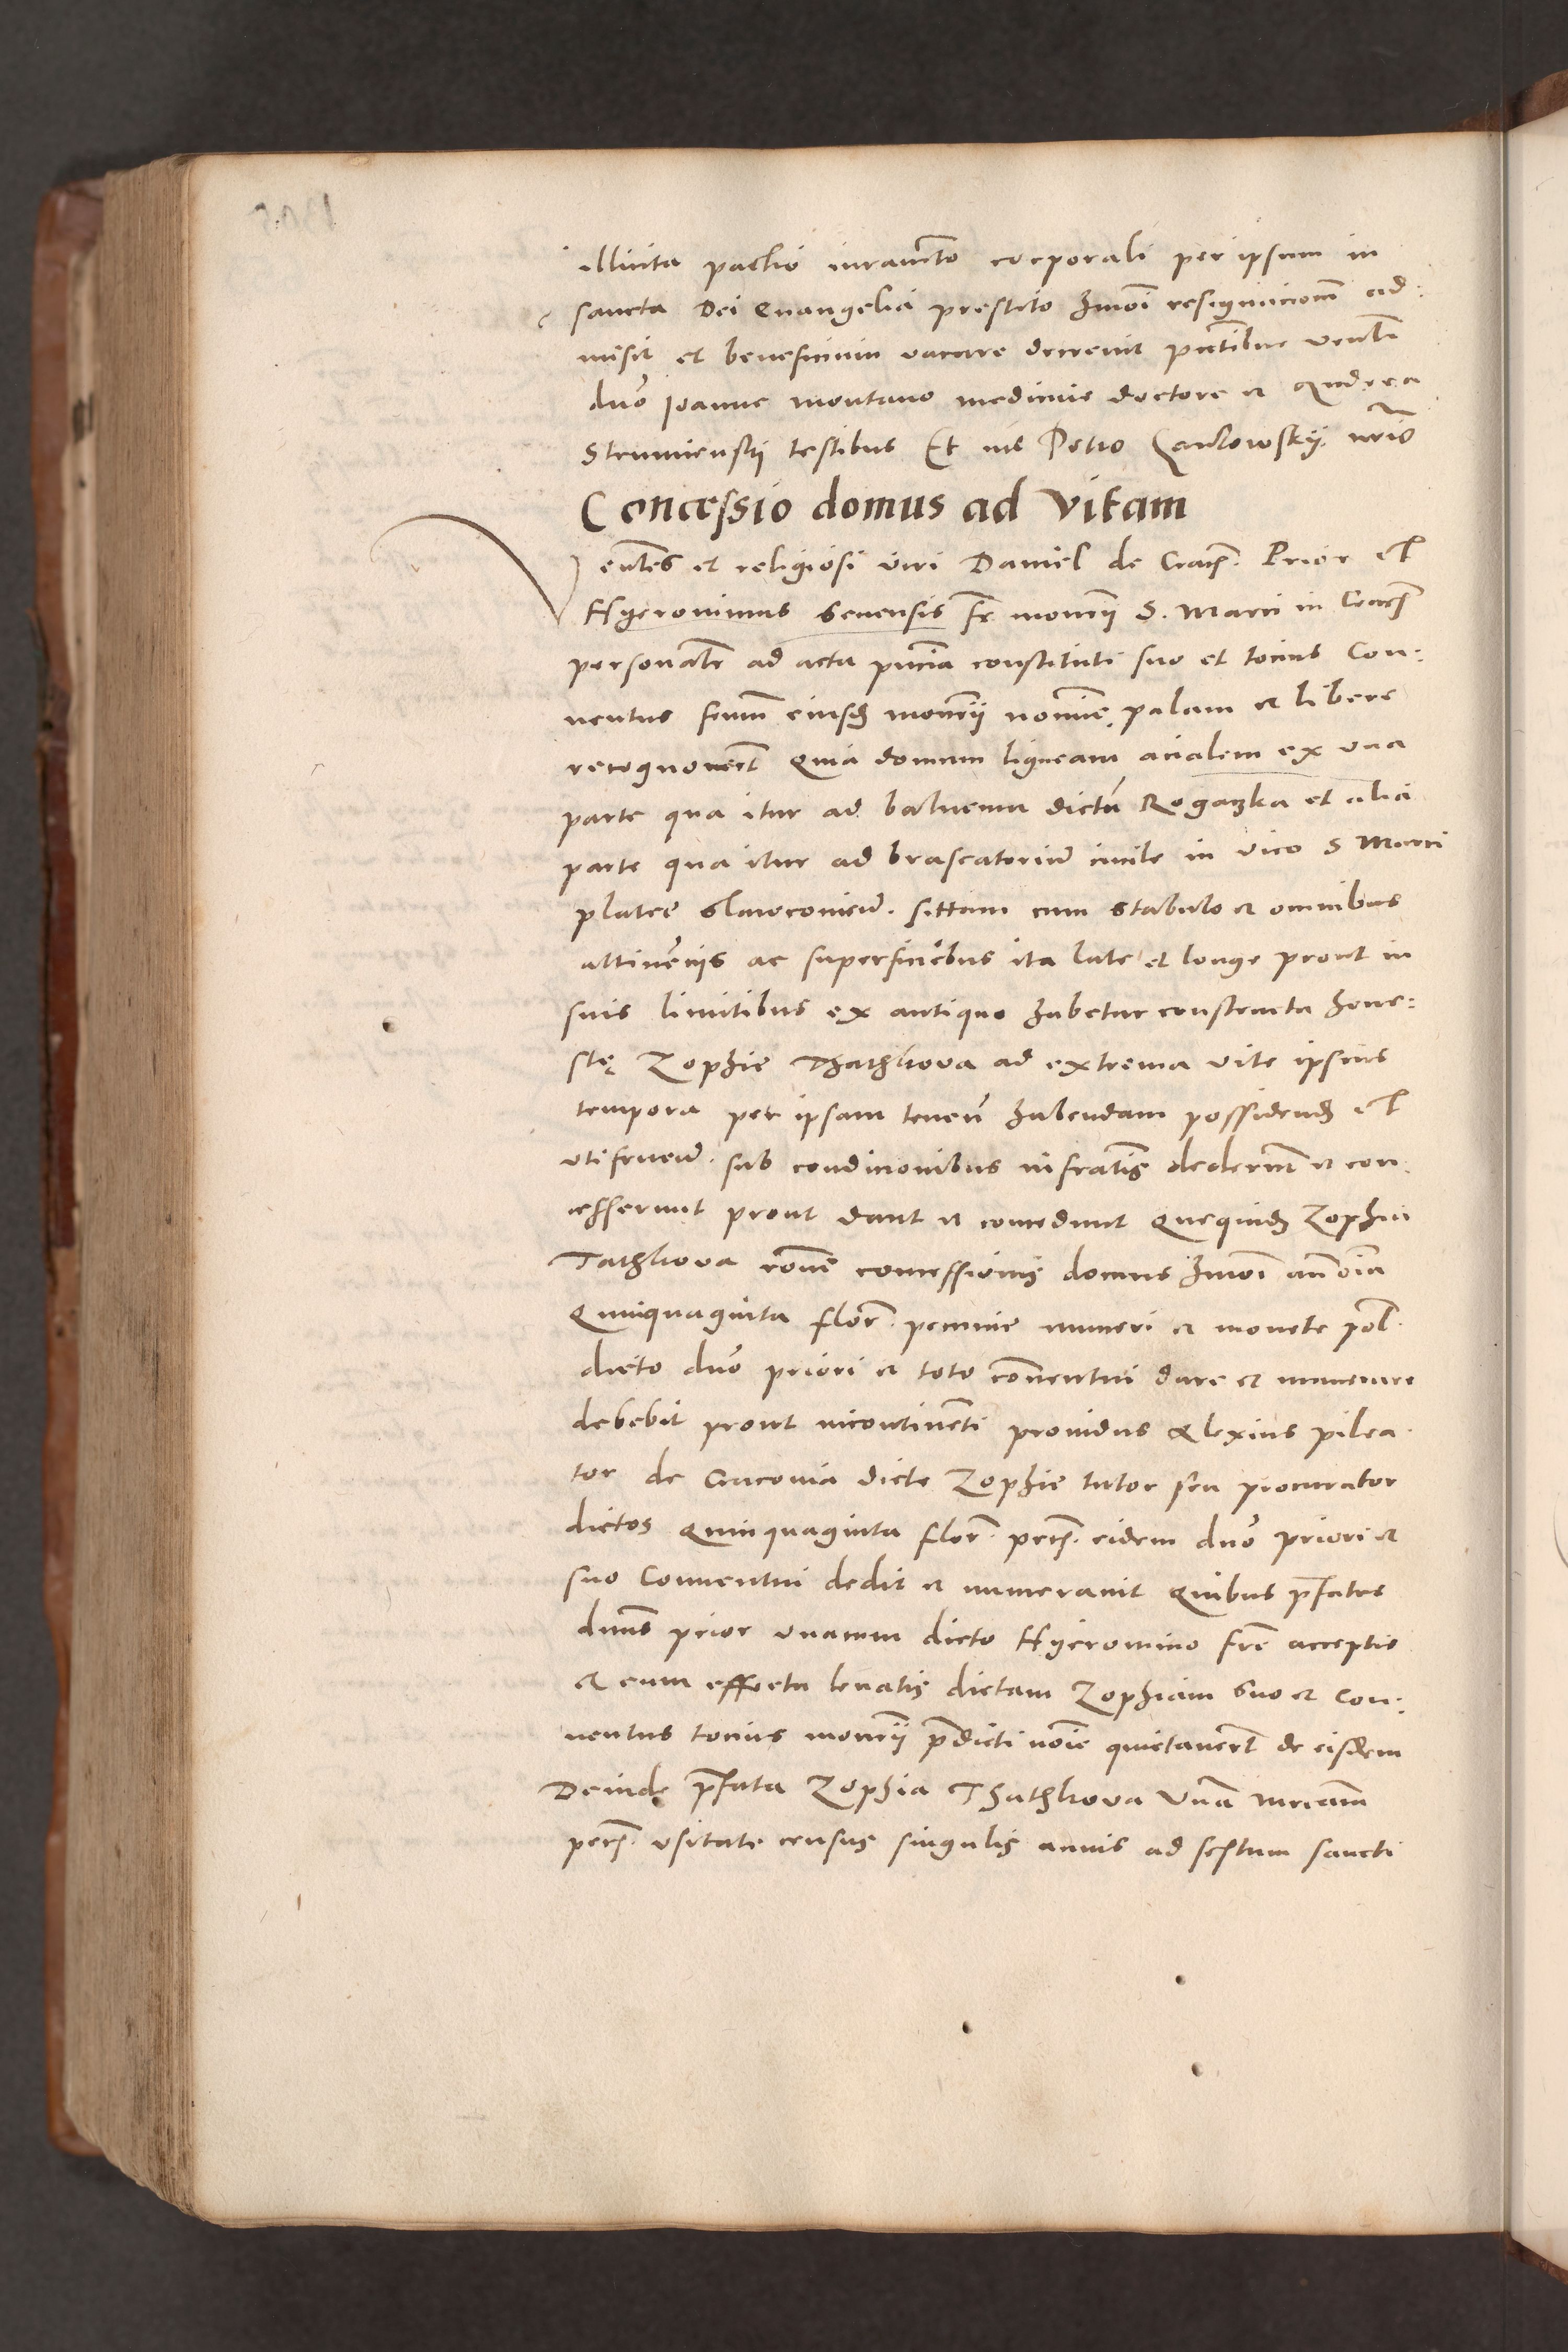 illicita pactio iuramēto corporali per ipsum in
sancta Dei Euangelia prestito hmōi resignacionē ad:
misit et beneficium vacare decreuit pn̄tibus venēli
dn̄o Joanne montano medicine doctore et Andrea
testibus Et me Petro nrīo
Concessio domus ad vitam
Ven̄tes et religiosi viri Daniel de Crac. Prior et
Hÿeronimus Senensis fr̄ monrÿ S. Marci in Crac
personalr̄ ad acta pn̄cia constituti suo et tocius Con:
uentus frūm eiusdꝫ monrÿ nomine palam et libere
recognouerūt Quia domum ligneam acialem ex vna
parte qua itur ad balneum dictū Rogaczka et alia
parte qua itur ad braseatoriū ciuile in vico S Marci
platee Slawconieñ. sittam cum stabulo et omnibus
attinēciis ac superficiēbus ita late et longe prout in
suis limitibus ex antiquo habetur constructa hone:
stę Zophie Thathkova ad extrema vite ipsius
tempora per ipsam teneñ habendam possidendꝫ et
vtifrueñ. sub condicionibus infratis dederunt et con:
cesserunt prout dant et concedunt Quequidꝫ Zophia
Tathkova rōne concessionis domus hmōi an̄ oīa
Quinquaginta flor. pecunie numeri et monete pol.
dicto dn̄o priori et toto cōuentui dare et numerare
debebit prout incontinēti prouidus Alexius pilea
tor de Cracouia dicte Zophie tutor seu procurator
dictos Quinquaginta flor. pec. eidem dn̄o priori et
suo Conuentui dedit et numerauit Quibus p̄fatus
dnūs prior vnacum dicto Hÿeronimo fr̄e acceptis
et cum effectu leuatis dictam Zophiam suo et Con:
uentus tocius monrÿ p̄dicti nōie quietauerūt de eisdem
Deinde p̄fata Zophia Thathkova Vnā mrcam
pec. vsitate census singulis annis ad festum sancti